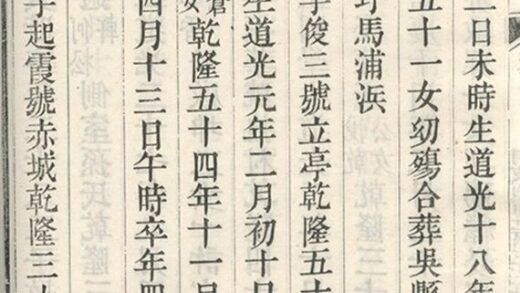 二日未時生道光十八年
五十一女幼殤合葬吳縣
圩馬浦浜
字俊三號立亭乾隆五十
生道光元年二月初十日
乾隆五十四年十一月
四月十三日午時卒年四
字起霞號赤城乾隆三十